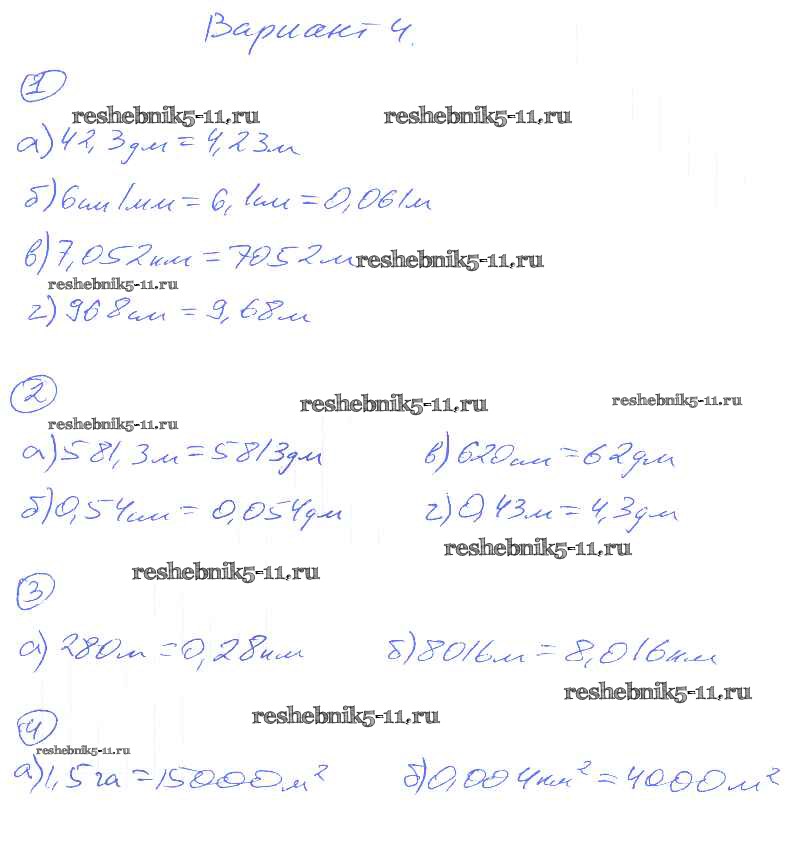 Вариант 4.
1
reshebnik5-11.ru reshebnik5-11.ru
а) 42,3дм = 4,23м
б) 6см 1мм = 6,1см = 0,061м
в) 7,052км = 7052м reshebnik5-11.ru
reshebnik5-11.ru
г) 968см = 9,68м
2
reshebnik5-11.ru reshebnik5-11.ru
reshebnik5-11.ru
а) 581,3м = 5813дм в) 620см = 62дм
б) 0,54см = 0,054дм г) 0,43м = 4,3дм
reshebnik5-11.ru
reshebnik5-11.ru
3
а) 280м = 0,28км б) 8016м = 8,016км
reshebnik5-11.ru
reshebnik5-11.ru
4
reshebnik5-11.ru
а) 1,5га = 15000м² б) 0,004км² = 4000м²